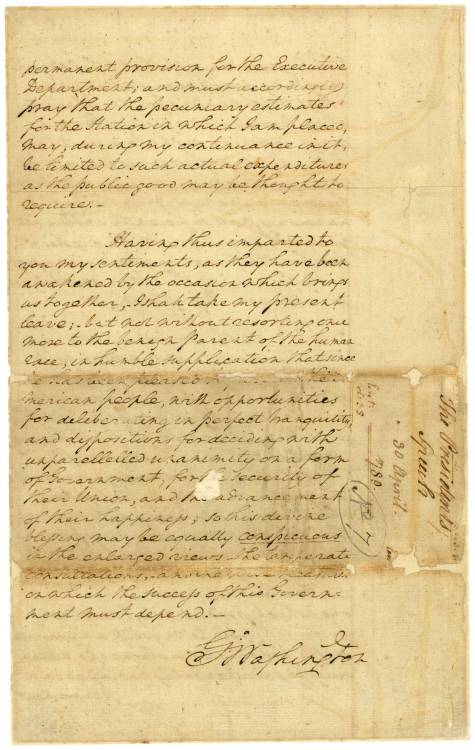 permanent provision for the Executive
Department; and must accordingly
pray that the pecuniary estimates
for the Station in which I am placed,
may, during my continuance in it,
be limited to such actual expenditures
as the public good may be thought to
require.—
Having thus imparted to
you my sentiments, as they have been
awakened by the occasion which brings
us together,—I shall take my present
leave;—but not without resorting once
more to the benign Parent of the human
race, in humble supplication that since
he has been pleased the
American people, with opportunities
for deliberating in perfect tranquility,
and dispositions for deciding with
unparellelled unanimity on a form
of Government, for Security of
their Union, and the advancement
of their happiness; so this divine
blessing may be equally conspicuous
in the enlarged views—the temperate
consultations,—and the wise measures
on which the success of this Govern-
ment must depend.—
G. Washington
The Presidents
Speech
30 April
1789
No 7